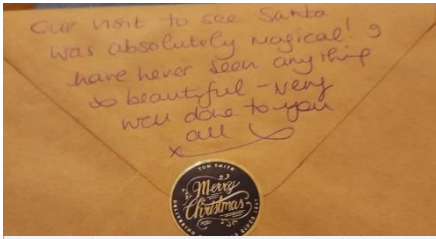 Our visit to see Santa
was absolutely magical! I
have never seen anything
so beautiful - very
well done to you
all x
TOM SMITH
Merry
Christmas